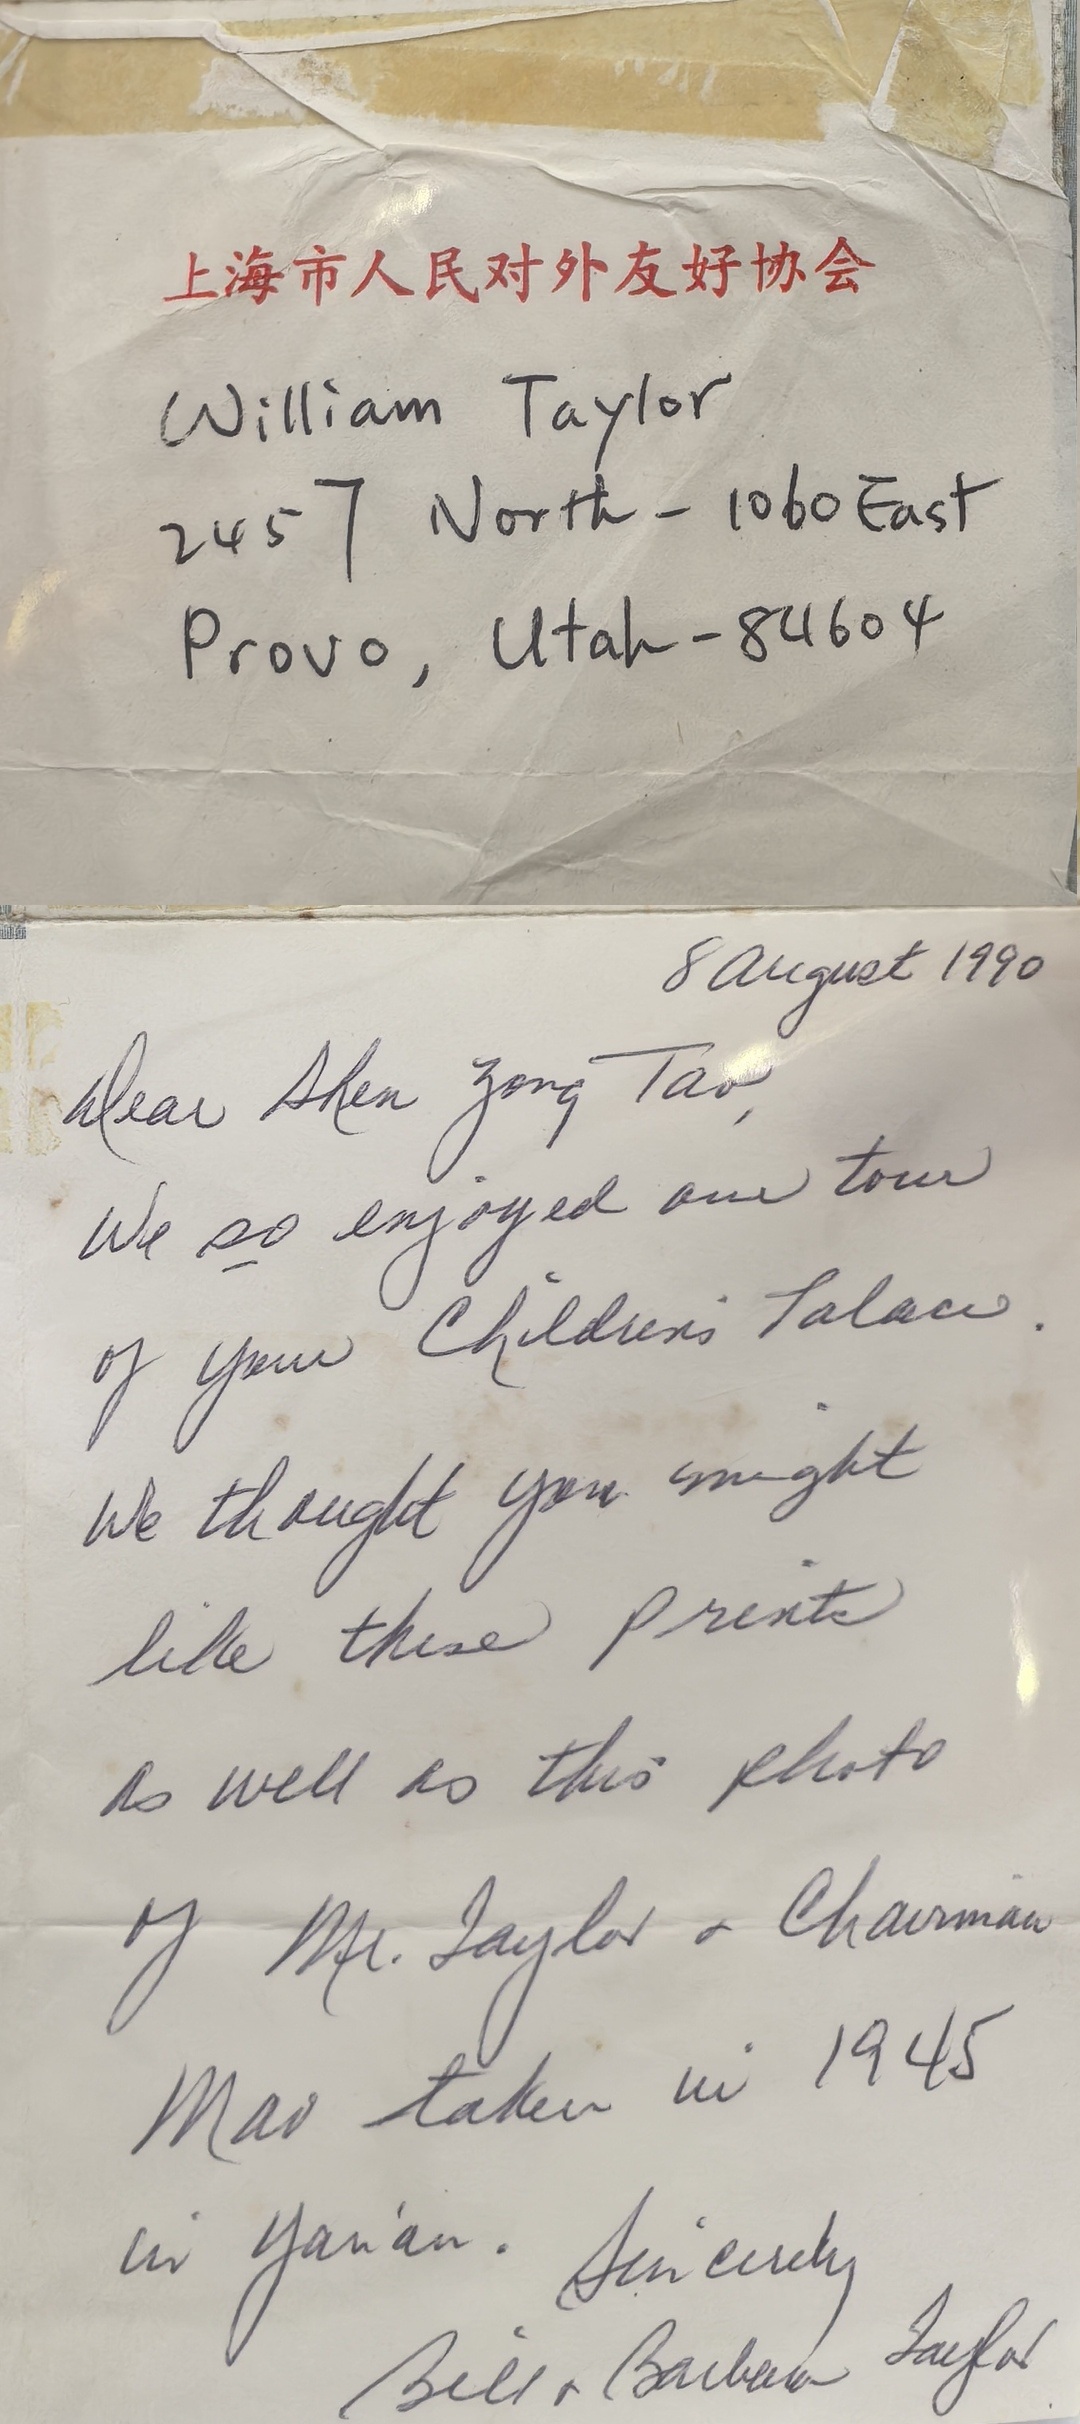 上海市人民对外友好协会
William Taylor
2457 North - 1060 East
Provo, Utah - 84604
8 August 1990
Dear Shen Zong Tao,
We so enjoyed our tour
of your Children's Palace.
We thought you might
like these prints
as well as this photo
of Mr. Taylor & Chairman
Mao taken in 1945
in Yan'an. Sincerely
Bill & Barbara Taylor